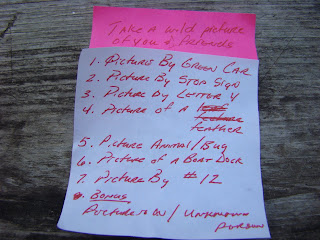 Take a wild picture
of you & friends
1. Pictures By Green Car
2. Picture By Stop Sign
3. Picture By Letter Y
4. Picture of a
feather
5. Picture Animal/Bug
6. Picture of a Boat Dock
7. Picture By #12
Bonus
Pictures w/ Unknown
Persons